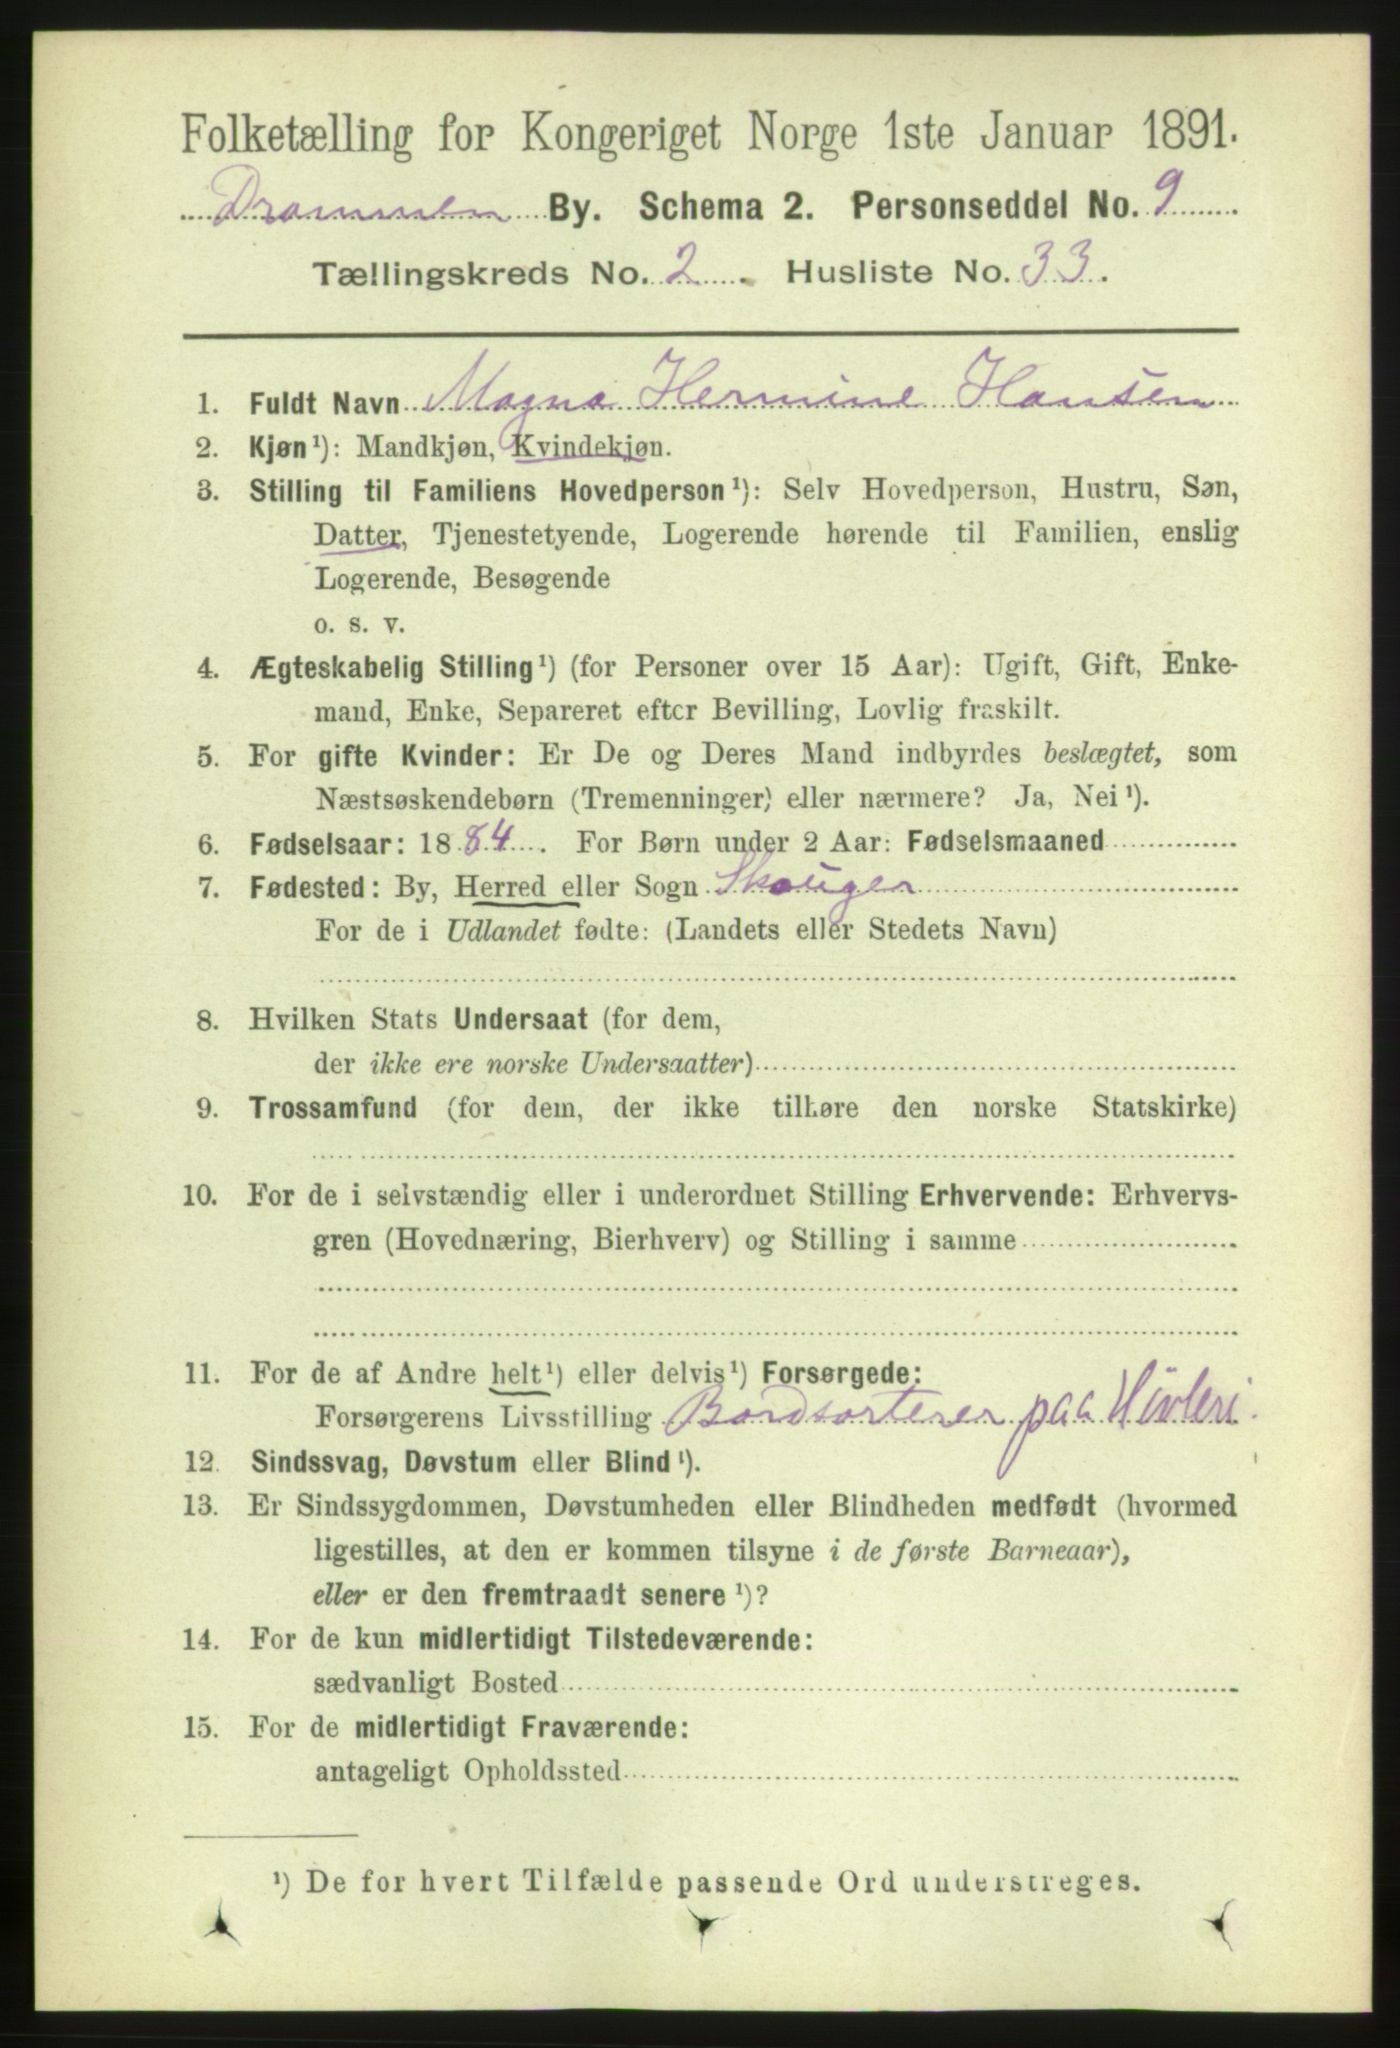 Folketælling for Kongeriget Norge 1ste Januar 1891.
Drammen By. Schema 2. Personseddel No. 9
Tællingskreds No. 2. Husliste No. 33.
1. Fuldt Navn Magna Hermine Hansen
2. Kjøn¹): Mandkjøn, Kvindekjøn.
3. Stilling til Familiens Hovedperson¹): Selv Hovedperson, Hustru, Søn,
Datter, Tjenestetyende, Logerende hørende til Familien, enslig
Logerende, Besøgende
o. s. v.
4. Ægteskabelig Stilling¹) (for Personer over 15 Aar): Ugift, Gift, Enke-
mand, Enke, Separeret efter Bevilling, Lovlig fraskilt.
5. For gifte Kvinder: Er De og Deres Mand indbyrdes beslægtet, som
Næstsøskendebørn (Tremenninger) eller nærmere? Ja, Nei¹).
6. Fødselsaar: 1884. For Børn under 2 Aar: Fødselsmaaned
7. Fødested: By, Herred eller Sogn Skouger
For de i Udlandet fødte: (Landets eller Stedets Navn)
8. Hvilken Stats Undersaat (for dem,
der ikke ere norske Undersaatter)
9. Trossamfund (for dem, der ikke tilhøre den norske Statskirke)
10. For de i selvstændig eller i underordnet Stilling Erhvervende: Erhvervs-
gren (Hovednæring, Bierhverv) og Stilling i samme
11. For de af Andre helt¹) eller delvis¹) Forsørgede:
Forsørgerens Livsstilling Bordsorterer paa Høvleri.
12. Sindssvag, Døvstum eller Blind¹).
13. Er Sindssygdommen, Døvstumheden eller Blindheden medfødt (hvormed
ligestilles, at den er kommen tilsyne i de første Barneaar),
eller er den fremtraadt senere¹)?
14. For de kun midlertidigt Tilstedeværende:
sædvanligt Bosted
15. For de midlertidigt Fraværende:
antageligt Opholdssted
¹) De for hvert Tilfælde passende Ord understreges.